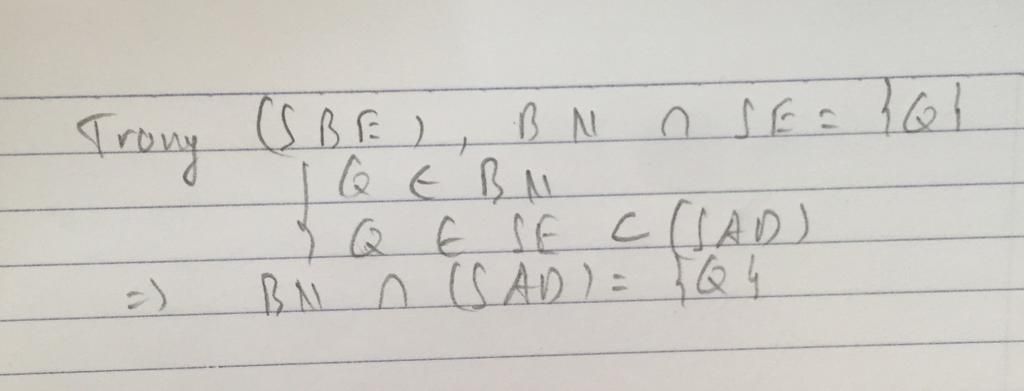 Trong (SBE), BN ∩ SE = {Q}
{ Q ∈ BN
Q ∈ SE ⊂ (SAD)
=> BN ∩ (SAD) = {Q}